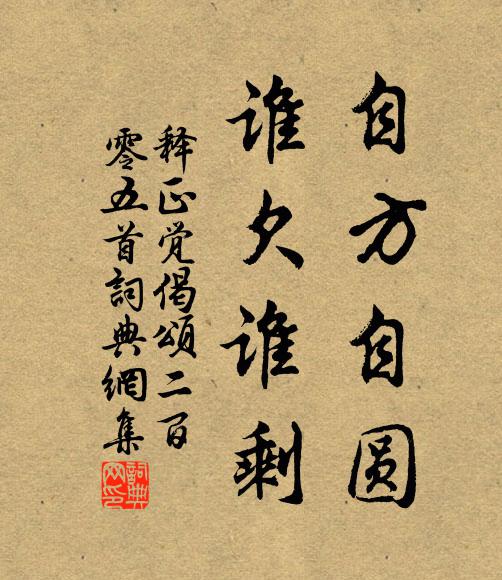 自方自圆
谁欠谁剩
释正觉偈颂二百
零五首詞典網集
詞典
网印